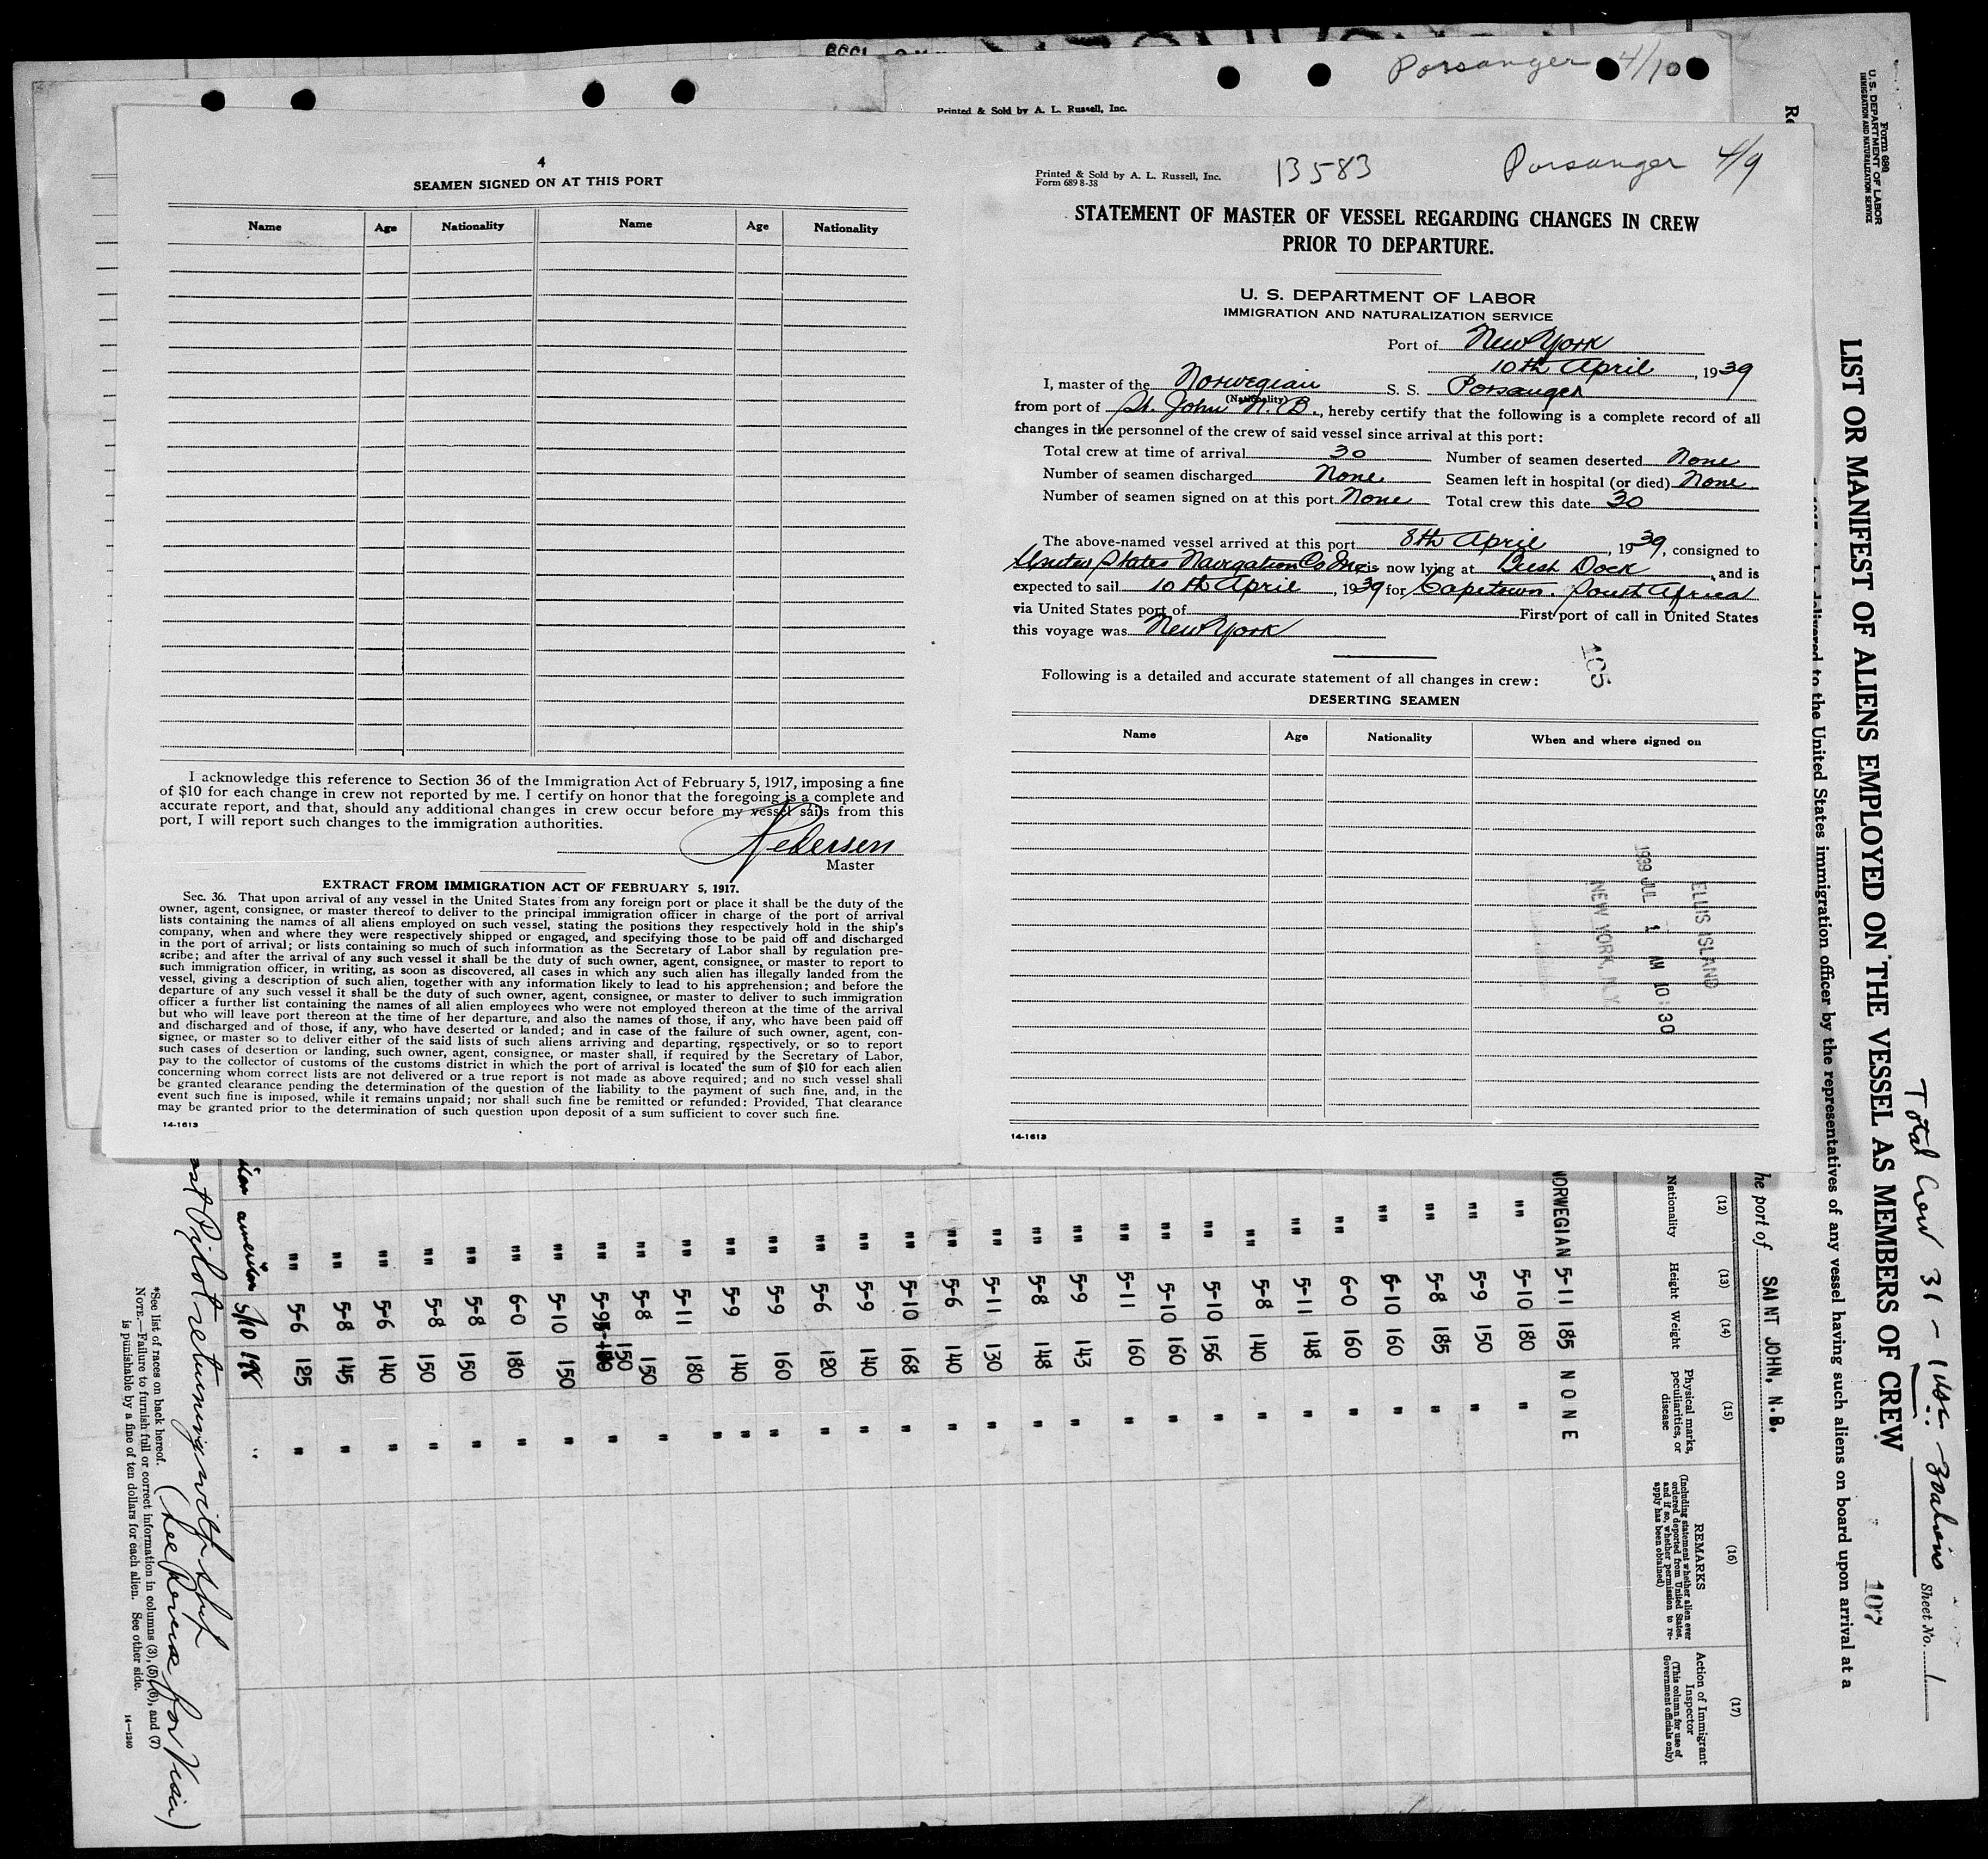 Porsanger 4/10
Printed & Sold by A. L. Russell, Inc.
4
SEAMEN SIGNED ON AT THIS PORT
Name Age Nationality Name Age Nationality
I acknowledge this reference to Section 36 of the Immigration Act of February 5, 1917, imposing a fine
of $10 for each change in crew not reported by me. I certify on honor that the foregoing is a complete and
accurate report, and that, should any additional changes in crew occur before my vessel sails from this
port, I will report such changes to the immigration authorities.
Pedersen
Master
EXTRACT FROM IMMIGRATION ACT OF FEBRUARY 5, 1917.
Sec. 36. That upon arrival of any vessel in the United States from any foreign port or place it shall be the duty of the
owner, agent, consignee, or master thereof to deliver to the principal immigration officer in charge of the port of arrival
lists containing the names of all aliens employed on such vessel, stating the positions they respectively hold in the ship's
company, when and where they were respectively shipped or engaged, and specifying those to be paid off and discharged
in the port of arrival; or lists containing so much of such information as the Secretary of Labor shall by regulation pre-
scribe; and after the arrival of any such vessel it shall be the duty of such owner, agent, consignee, or master to report to
such immigration officer, in writing, as soon as discovered, all cases in which any such alien has illegally landed from the
vessel, giving a description of such alien, together with any information likely to lead to his apprehension; and before the
departure of any such vessel it shall be the duty of such owner, agent, consignee, or master to deliver to such immigration
officer a further list containing the names of all alien employees who were not employed thereon at the time of the arrival
but who will leave port thereon at the time of her departure, and also the names of those, if any, who have been paid off
and discharged and of those, if any, who have deserted or landed; and in case of the failure of such owner, agent, con-
signee, or master so to deliver either of the said lists of such aliens arriving and departing, respectively, or so to report
such cases of desertion or landing, such owner, agent, consignee, or master shall, if required by the Secretary of Labor,
pay to the collector of customs of the customs district in which the port of arrival is located the sum of $10 for each alien
concerning whom correct lists are not delivered or a true report is not made as above required; and no such vessel shall
be granted clearance pending the determination of the question of the liability to the payment of such fine, and, in the
event such fine is imposed, while it remains unpaid; nor shall such fine be remitted or refunded: Provided, That clearance
may be granted prior to the determination of such question upon deposit of a sum sufficient to cover such fine.
14-1613
Printed & Sold by A. L. Russell, Inc.
Form 689 8-38
13583
Porsanger 4/9
STATEMENT OF MASTER OF VESSEL REGARDING CHANGES IN CREW
PRIOR TO DEPARTURE.
U. S. DEPARTMENT OF LABOR
IMMIGRATION AND NATURALIZATION SERVICE
Port of New York
10th April, 1939
I, master of the Norwegian S. S. Porsanger
(Nationality)
from port of St. John N. B., hereby certify that the following is a complete record of all
changes in the personnel of the crew of said vessel since arrival at this port:
Total crew at time of arrival 30 Number of seamen deserted None
Number of seamen discharged None Seamen left in hospital (or died) None
Number of seamen signed on at this port None Total crew this date 30
The above-named vessel arrived at this port 8th April, 1939, consigned to
United States Navigation Co Inc is now lying at Bush Dock, and is
expected to sail 10th April, 1939 for Capetown. South Africa
via United States port of First port of call in United States
this voyage was New York
105
Following is a detailed and accurate statement of all changes in crew:
DESERTING SEAMEN
Name Age Nationality When and where signed on
ELLIS ISLAND
1939 JUL 1 AM 10:30
NEW YORK, N.Y.
14-1613
Form 680
U. S. DEPARTMENT OF LABOR
IMMIGRATION AND NATURALIZATION SERVICE
Total Crew 31 - 1 USC. - 30 aliens
Sheet No. 1
LIST OR MANIFEST OF ALIENS EMPLOYED ON THE VESSEL AS MEMBERS OF CREW
107
delivered to the United States immigration officer by the representatives of any vessel having such aliens on board upon arrival at a
he port of SAINT JOHN, N.B.
(12) (13) (14) (15) (16) (17)
Nationality
Height
Weight
Physical marks, peculiarities, or disease
REMARKS
(Including statement whether alien ever ordered deported from United States, and if so, whether permission to re-apply has been obtained)
Action of Immigrant Inspector
(This column for use of Government officials only)
NORWEGIAN 5-11 185 NONE
"" 5-10 180 "
"" 5-9 150 "
"" 5-8 185 "
"" 5-10 160 "
"" 6-0 160 "
"" 5-11 148 "
"" 5-8 140 "
"" 5-10 156 "
"" 5-10 160 "
"" 5-11 160 "
"" 5-9 143 "
"" 5-8 148 "
"" 5-11 130 "
"" 5-6 140 "
"" 5-10 168 "
"" 5-9 140 "
"" 5-6 120 "
"" 5-9 160 "
"" 5-9 140 "
"" 5-11 180 "
"" 5-8 150 "
"" 5-9 150 "
"" 5-10 150 "
"" 6-0 180 "
"" 5-8 150 "
"" 5-8 150 "
"" 5-6 140 "
"" 5-8 145 "
"" 5-6 125 "
5/10 198 "
Pilot returning with ship
(See Reverse for Visa)
*See list of races on back hereof.
NOTE.—Failure to furnish full or correct information in columns (3), (5), (6), and (7)
is punishable by a fine of ten dollars for each alien. See other side.
14-1240